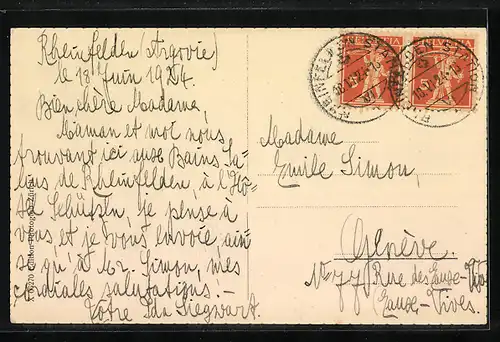 Rheinfelden (Argovie)
le 18 Juin 1924.
Bien chère Madame,
Maman et moi nous
trouvant ici aux Bains Sa-
lins de Rheinfelden, à l'Hô-
tel Schützen, je pense à
vous et je vous envoie, ain-
si qu'à Mr. Simon, mes
cordiales salutations! -
Votre Ida Siegwart.
Madame
Emile Simon,
Genève.
No 77, Rue des Eaux-Viv
Eaux-Vives.
HELVETIA
HELVETIA
RHEINFELDEN STADT